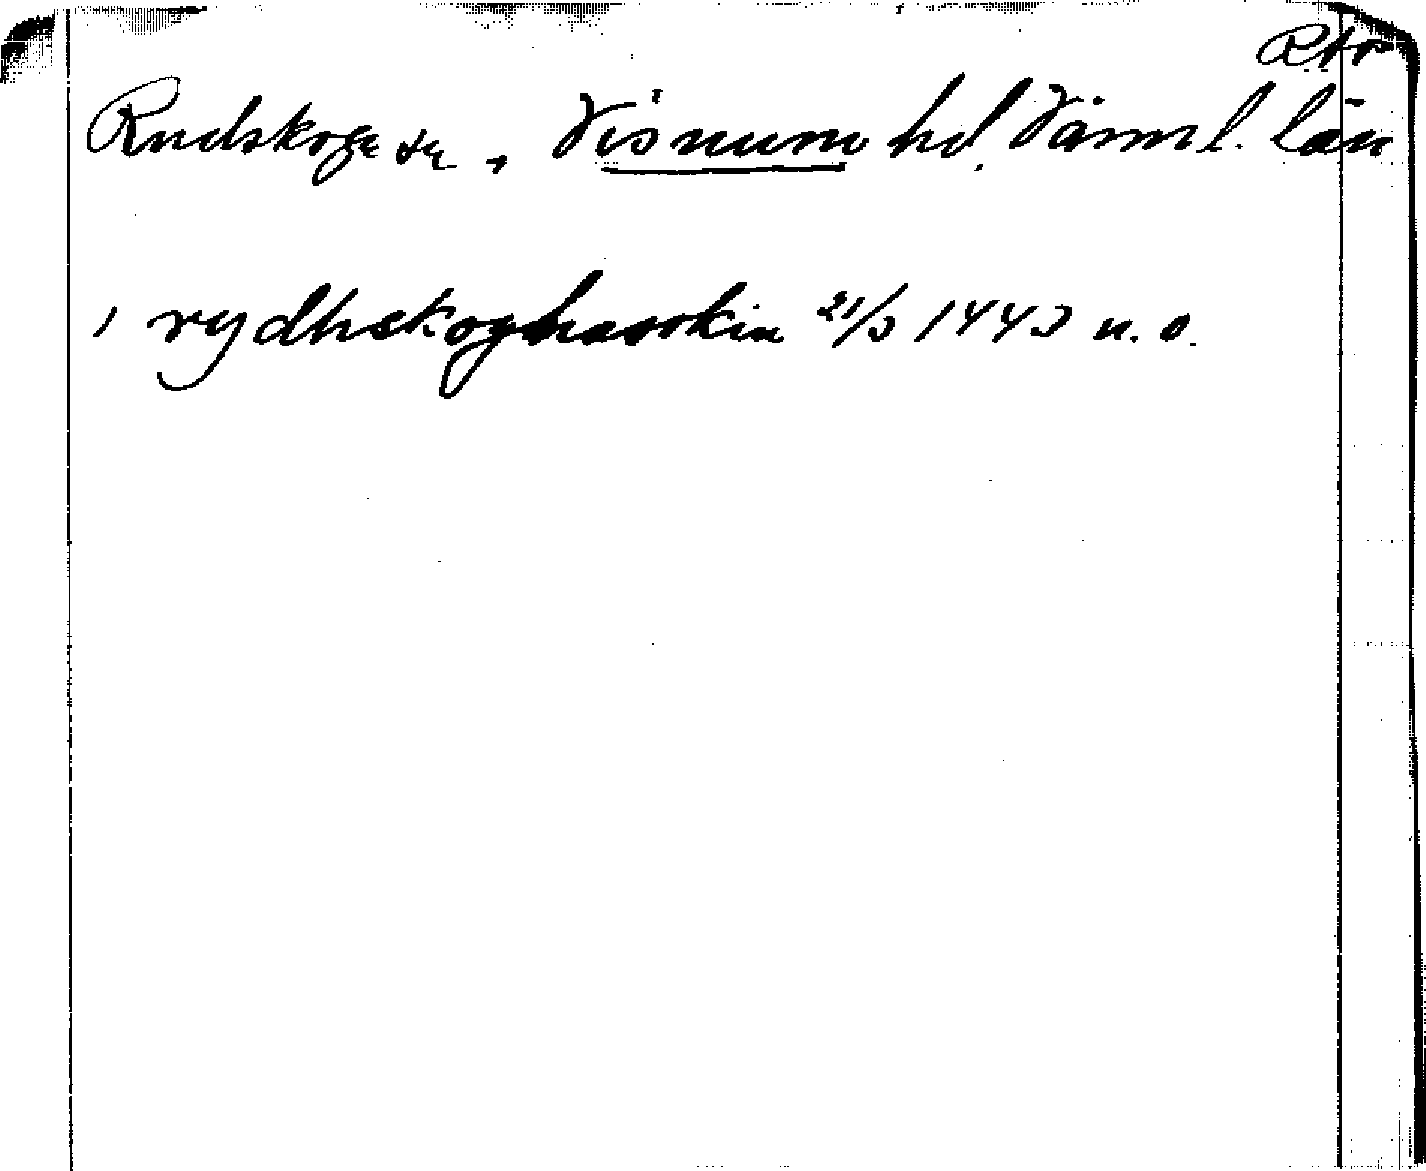 Rudskoga sn, Visnum hd. Värml. län
i rydhskoghasokin 21/3 1443 n. o.